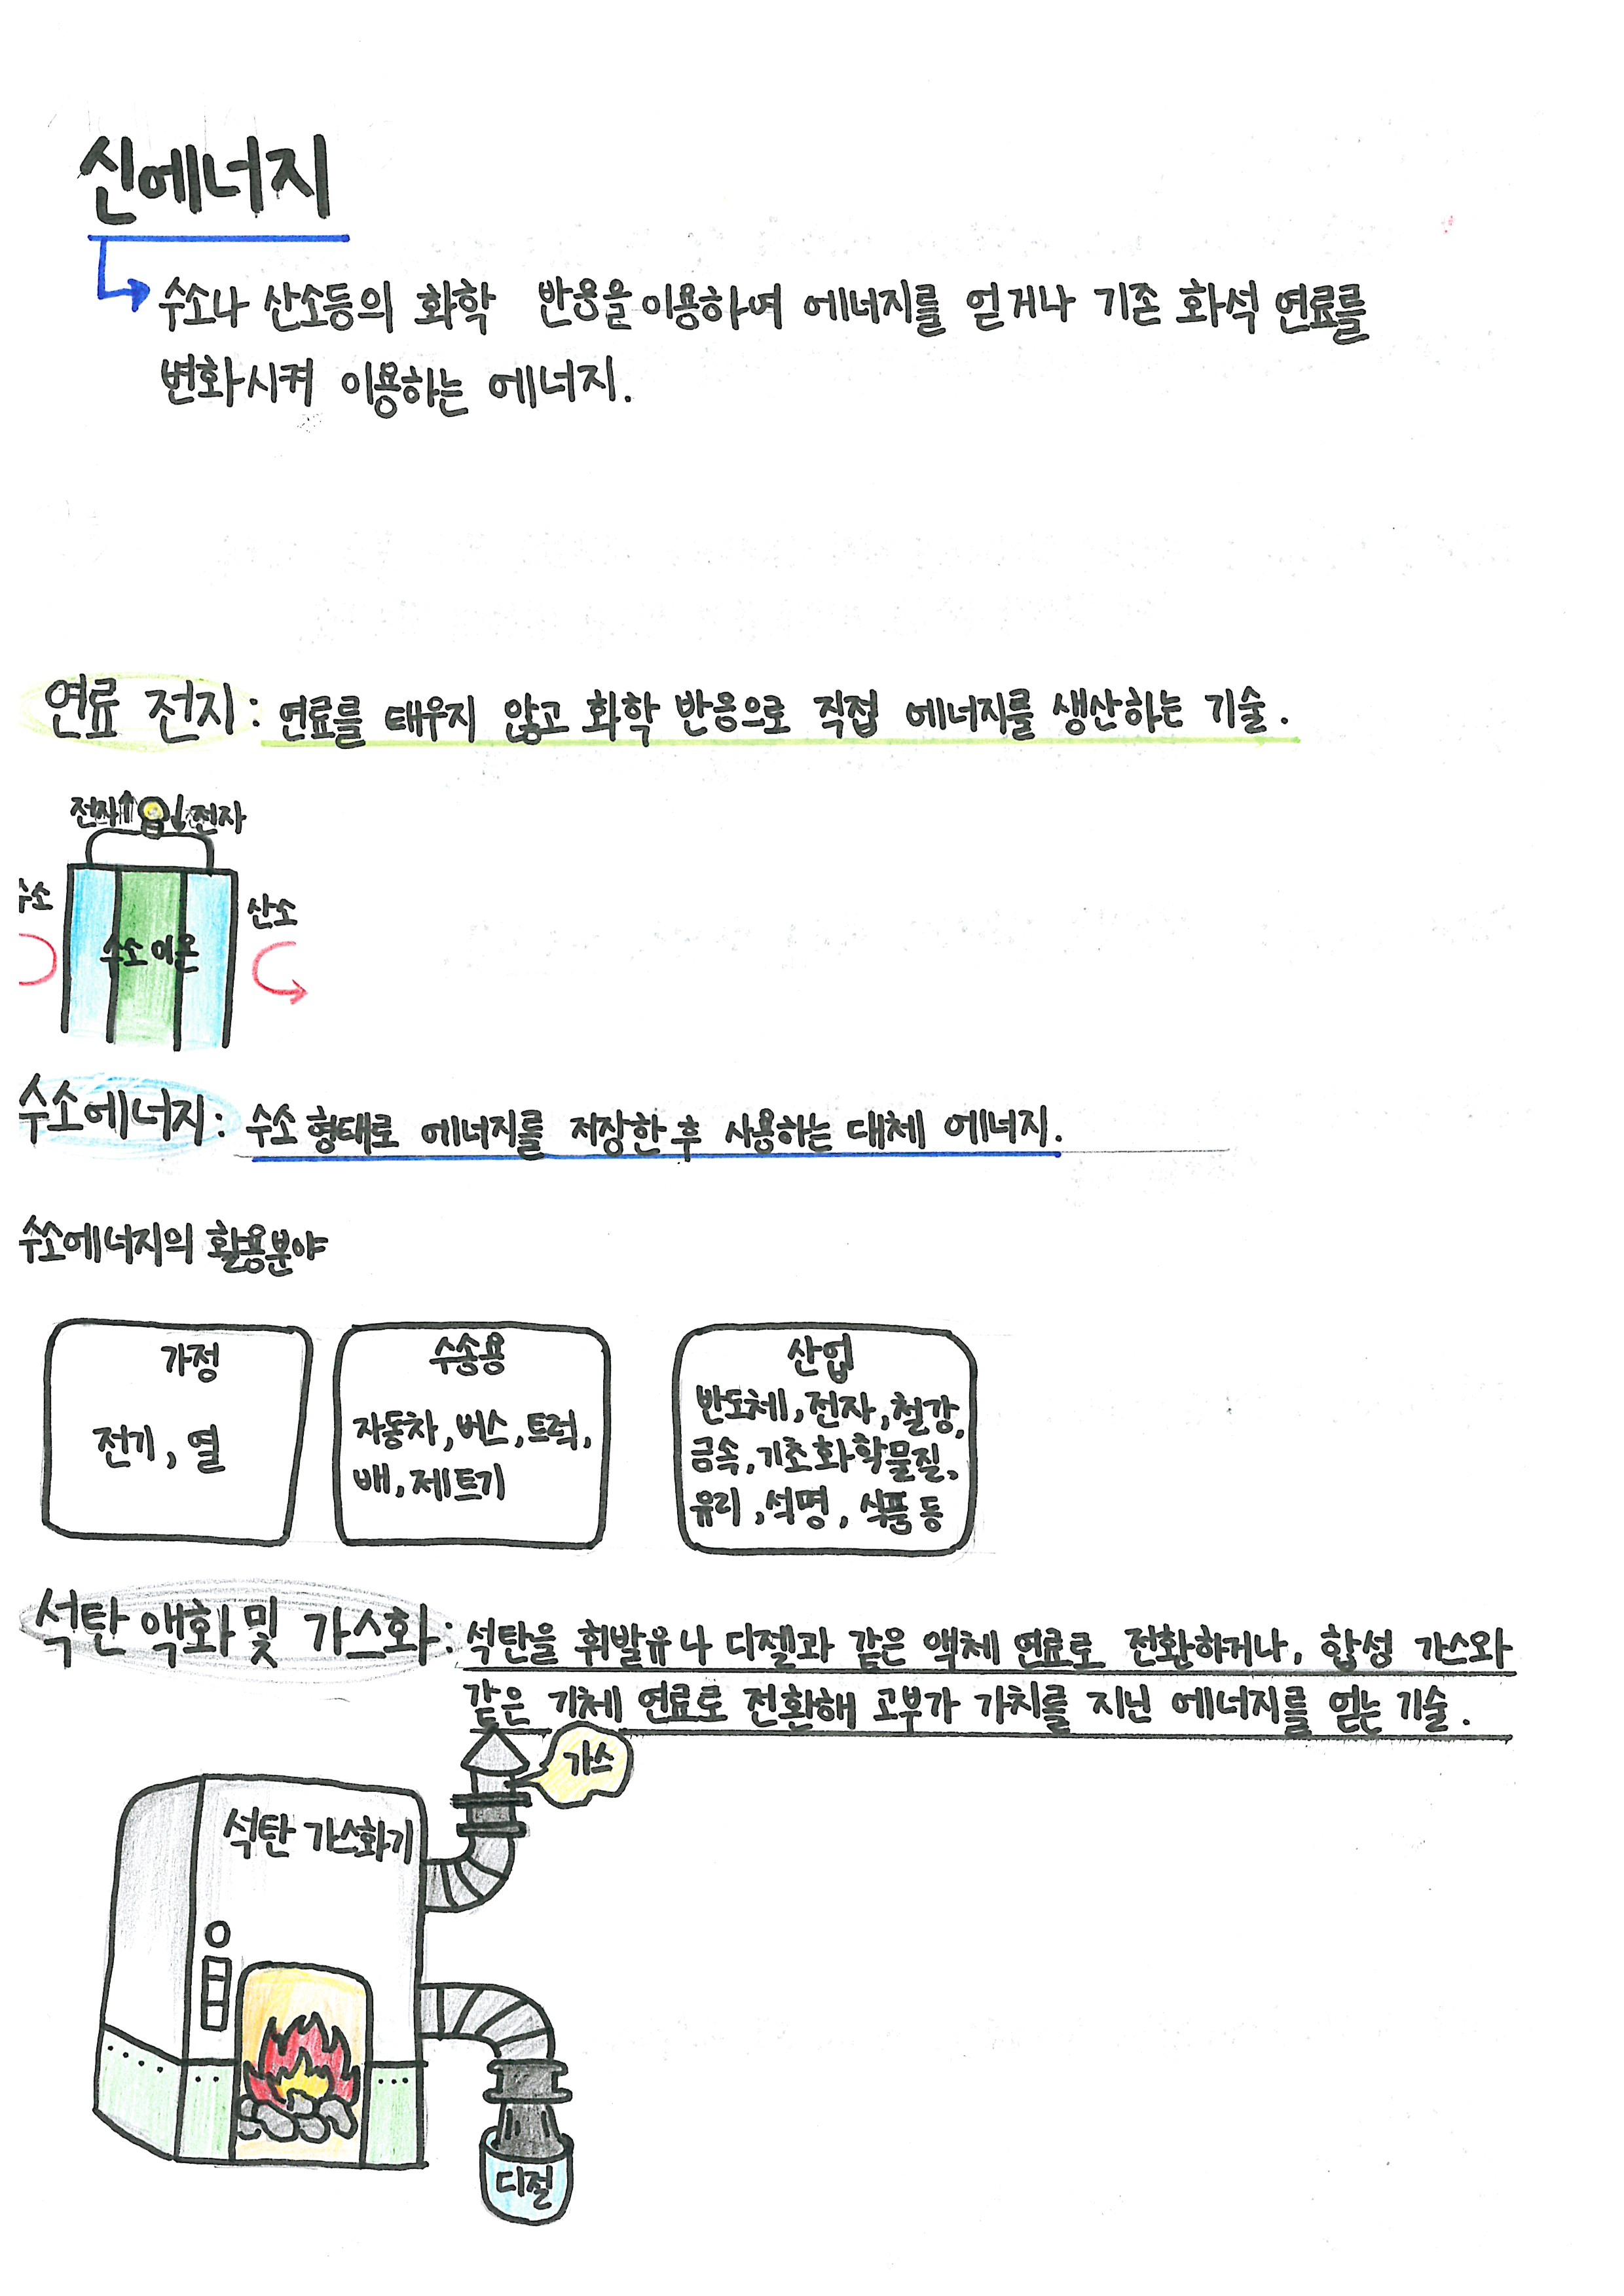 신에너지
수소나 산소등의 화학 반응을 이용하여 에너지를 얻거나 기존 화석 연료를
변화시켜 이용하는 에너지.
연료 전지: 연료를 태우지 않고 화학 반응으로 직접 에너지를 생산하는 기술.
전자↑ ↓전자
수소 산소
수소 이온
수소에너지: 수소 형태로 에너지를 저장한 후 사용하는 대체 에너지.
수소에너지의 활용분야
가정
전기, 열
수송용
자동차, 버스, 트럭,
배, 제트기
산업
반도체, 전자, 철강,
금속, 기초화학물질,
유리, 석명, 식품 등
석탄 액화 및 가스화: 석탄을 휘발유나 디젤과 같은 액체 연료로 전환하거나, 합성 가스와
같은 기체 연료로 전환해 고부가 가치를 지닌 에너지를 얻는 기술.
가스
석탄 가스화기
디젤